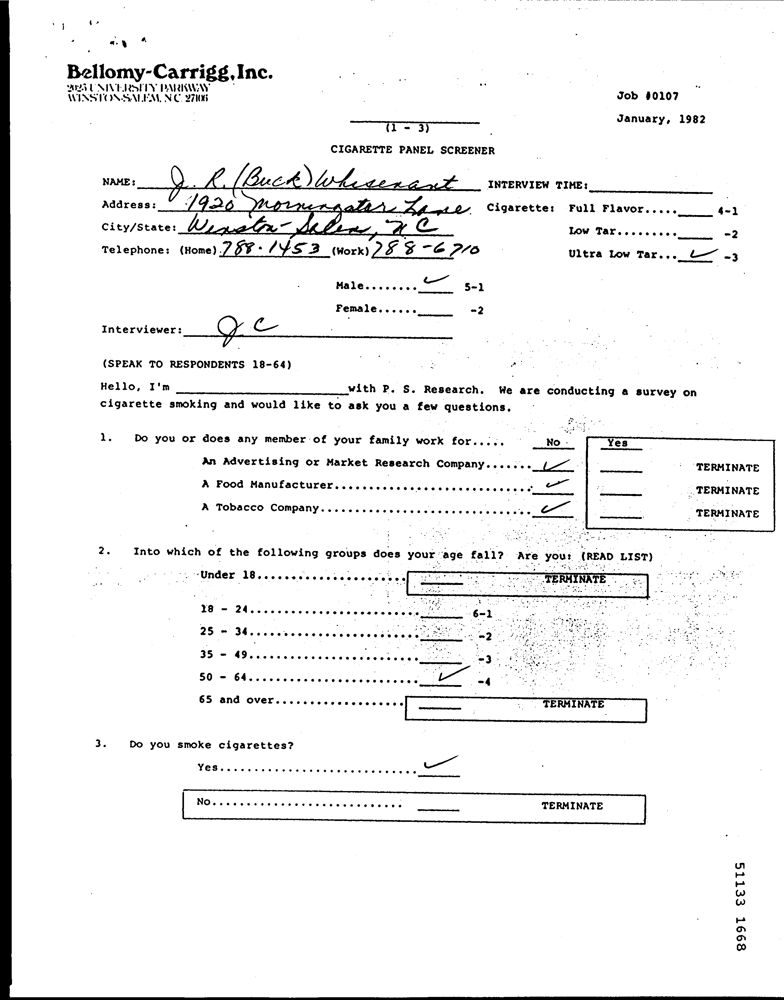 Bellomy-Carrigg, Inc.
2025 UNIVERSITY PARKWAY
WINSTON-SALEM, N.C. 27106
Job #0107
January, 1982
(1 - 3)
CIGARETTE PANEL SCREENER
NAME: J. R. (Buck) Whisenant INTERVIEW TIME:
Address: 1920 Morningstar Lane Cigarette: Full Flavor..... 4-1
City/State: Winston-Salem, NC Low Tar......... -2
Telephone: (Home) 788-1453 (Work) 788-6710 Ultra Low Tar... ✓ -3
Male........ ✓ 5-1
Female...... -2
Interviewer: JC
(SPEAK TO RESPONDENTS 18-64)
Hello, I'm ____ with P. S. Research. We are conducting a survey on
cigarette smoking and would like to ask you a few questions.
1. Do you or does any member of your family work for..... No Yes
An Advertising or Market Research Company....... ✓ TERMINATE
A Food Manufacturer............................. ✓ TERMINATE
A Tobacco Company............................... ✓ TERMINATE
2. Into which of the following groups does your age fall? Are you: (READ LIST)
Under 18...................... TERMINATE
18 - 24......................... 6-1
25 - 34......................... -2
35 - 49......................... -3
50 - 64......................... ✓ -4
65 and over................... TERMINATE
3. Do you smoke cigarettes?
Yes............................ ✓
No............................ TERMINATE
51133 1668